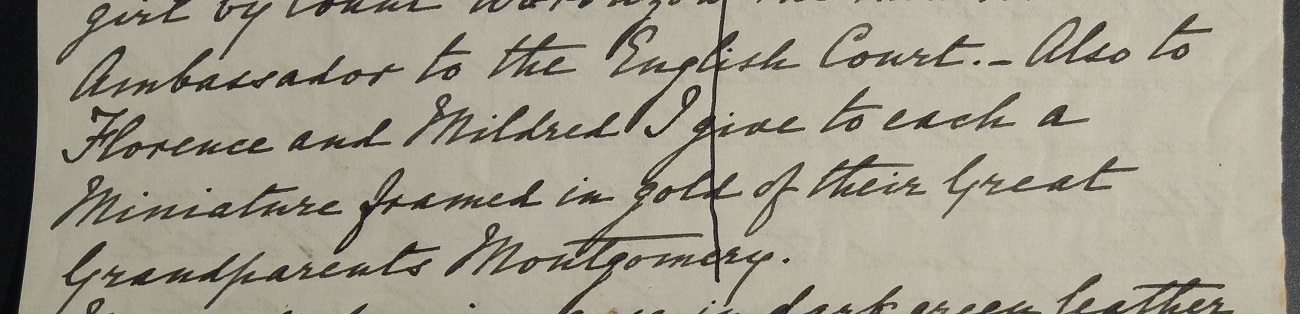 girl by Count Woronzow the
Ambassador to the English Court. – Also to
Florence and Mildred I give to each a
Miniature framed in gold of their Great
Grandparents Montgomery.
in dark green leather